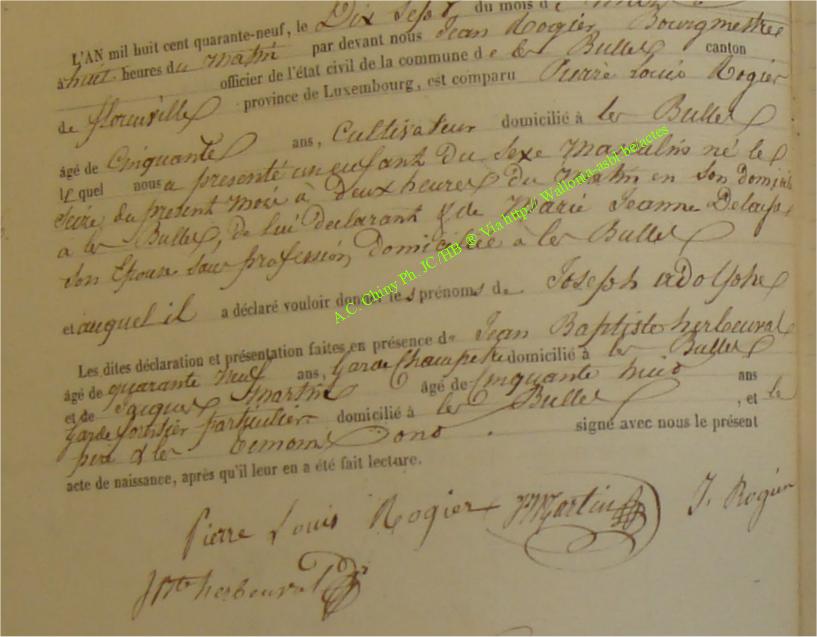 L'AN mil huit cent quarante-neuf, le Dix Sept du mois de
a huit heures du matin par devant nous Jean Rogier Bourgmestre
officier de l'état civil de la commune de les Bulles canton
de florenville province de Luxembourg, est comparu Pierre Louis Rogier
âgé de Cinquante ans, Cultivateur domicilié à les Bulles
lequel nous a presenté un enfant du sexe masculin né le
Seize du present mois à Deux heures Du matin en son domicile
a les Bulles, de lui declarant & de Marie Jeanne
Son Epouse sans profession, Domiciliée a les Bulles
et auquel il a déclaré vouloir donner les prénoms de Joseph adolphe
Les dites déclaration et présentation faites en présence de Jean Baptiste herbeuval
âgé de quarante neuf ans, Garde Champetre domicilié à les Bulles
et de Jacques Martin âgé de Cinquante huit ans
Garde forestier particulier domicilié à les Bulles, et le
pere & les temoins ont signé avec nous le présent
acte de naissance, après qu'il leur en a été fait lecture.
Pierre Louis Rogier JMartin J. Rogier
JBte herbeuval
A.C. Chiny Ph. JC/HB ® Via http://Wallonia-asbl-be/actes